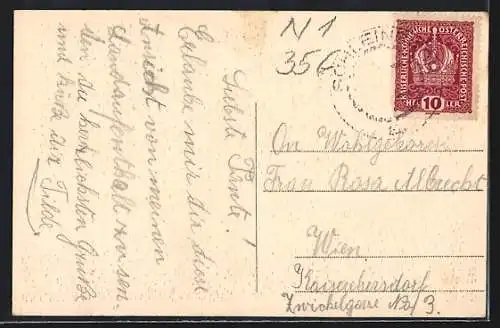 N 1
356
SCHLEINZ
KAISERLICHE KÖNIGLICHE ÖSTERREICHISCHE POST
10
HELLER
Liebste Tante!
Erlaube mir dir diese
Ansicht von meinen
Landaufenthalt zu sen-
den die herzlichsten Grüße
und Küße dir Tilde
An Wohlgeboren
Frau Rosa Albrecht
Wien
Kaiserebersdorf
Zwickelgasse No 3.